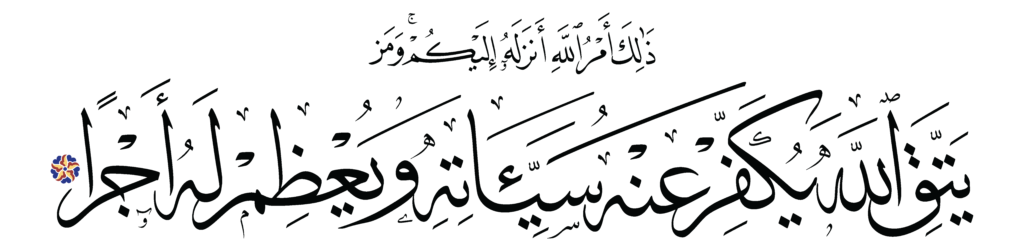 ذَٰلِكَ أَمْرُ ٱللَّهِ أَنزَلَهُۥٓ إِلَيْكُمْ ۚ وَمَن
يَتَّقِ ٱللَّهَ يُكَفِّرْ عَنْهُ سَيِّـَٔاتِهِۦ وَيُعْظِمْ لَهُۥٓ أَجْرًا